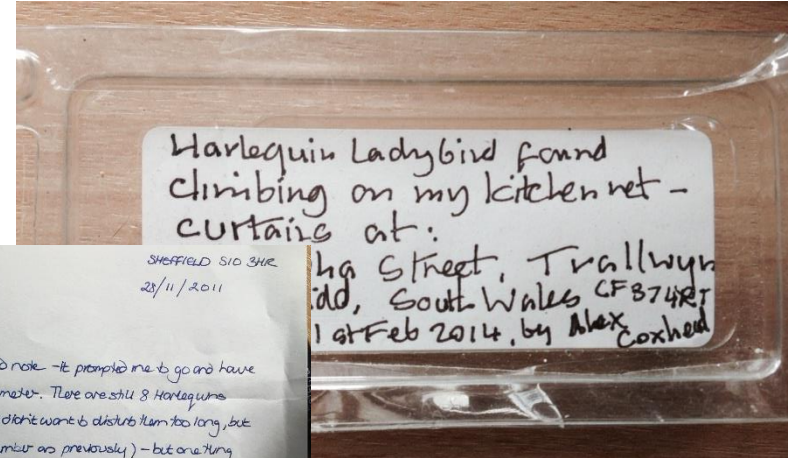 Harlequin Ladybird found
climbing on my kitchen net-
curtains at:
Street, Trallwyn
South Wales CF374RT
1st Feb 2014, by Alex
Coxhead
SHEFFIELD S10 3HR
28/11/2011
note - it prompted me to go and have
meter. There are still 8 Harlequins
didn't want to disturb them too long, but
as previously) - but one thing